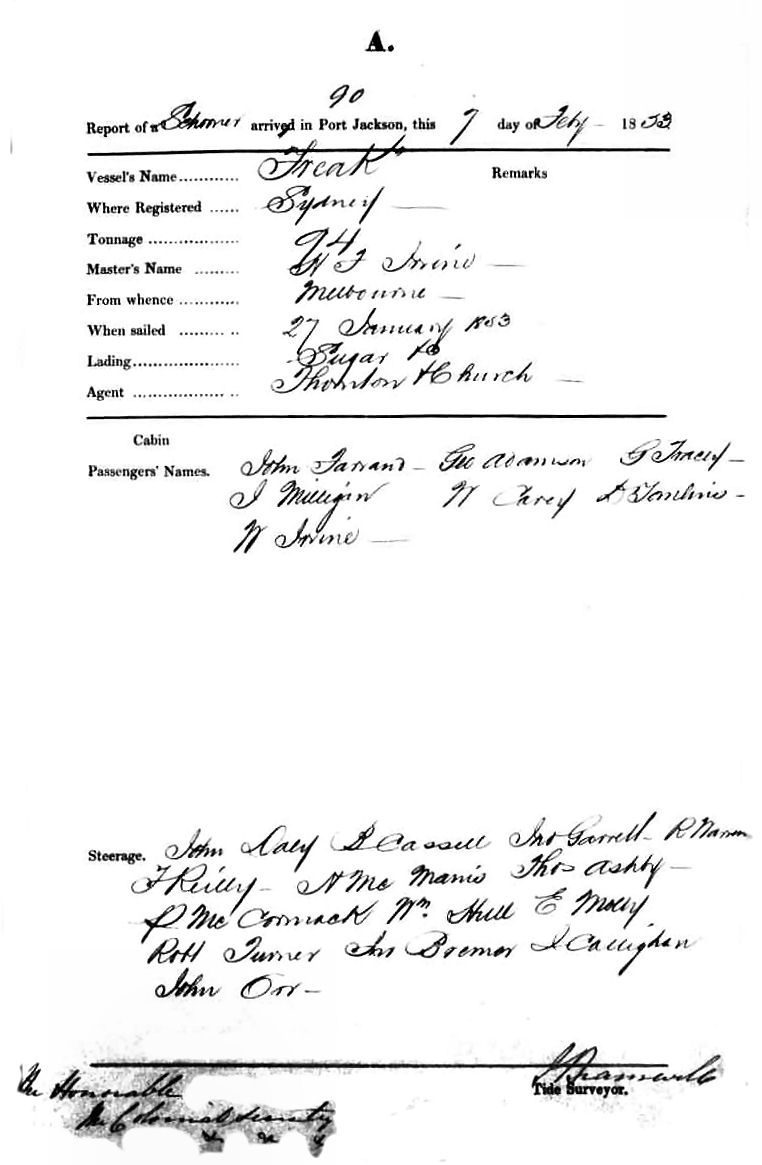 A.
90
Report of a Schooner arrived in Port Jackson, this 7 day of Feby – 1853
Vessel's Name............ "Freak" Remarks
Where Registered ...... Sydney —
Tonnage .................. 94
Master's Name ......... H F Irvine —
From whence ............ Melbourne —
When sailed ......... .. 27 January 1853
Lading.................. Sugar &c
Agent .................. .. Thornton & Church —
Cabin
Passengers' Names. John Farrand – Geo Adamson G Tracey –
J Milligin W Carey D Tomlins –
W Irvine —
Steerage. John Daly B Cassell Jno Garrell – R Warren
F Reilly – H Mc Manis Thos Ashby –
P Mc Cormack Wm Hull E Molly
Robt Turner Jas Bremer J Callighan
John Orr –
J Bramwell
Tide Surveyor.
The Honorable
The Colonial Secretary